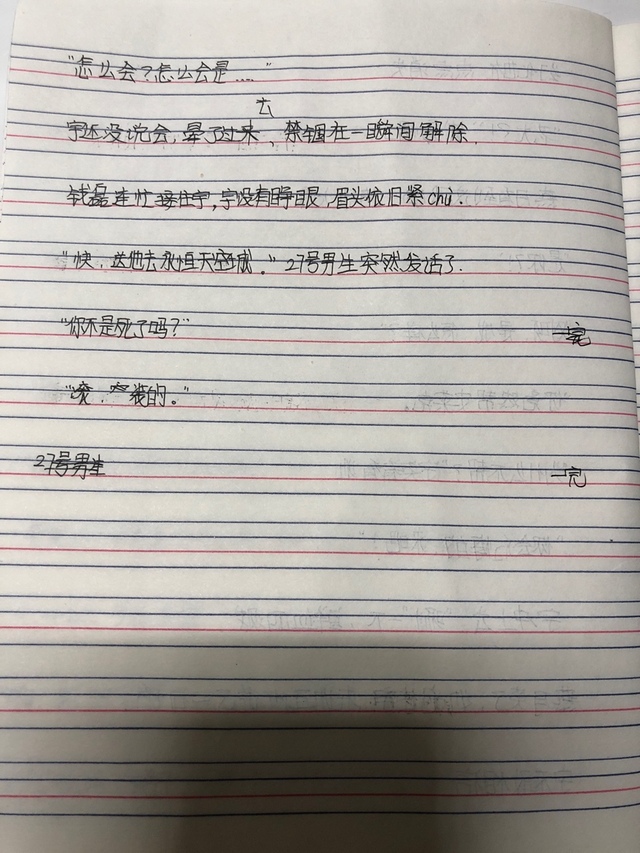 “怎么会？怎么会是……”
去
宇还没说会，晕了过来，禁锢在一瞬间解除.
钱磊连忙接住宇，宇没有睁眼，眉头依旧紧chù.
“快，送他去永恒天空城。”27号男生突然发话了.
“你不是死了吗？”
一完
“咳，装的。”
27号男生
一完